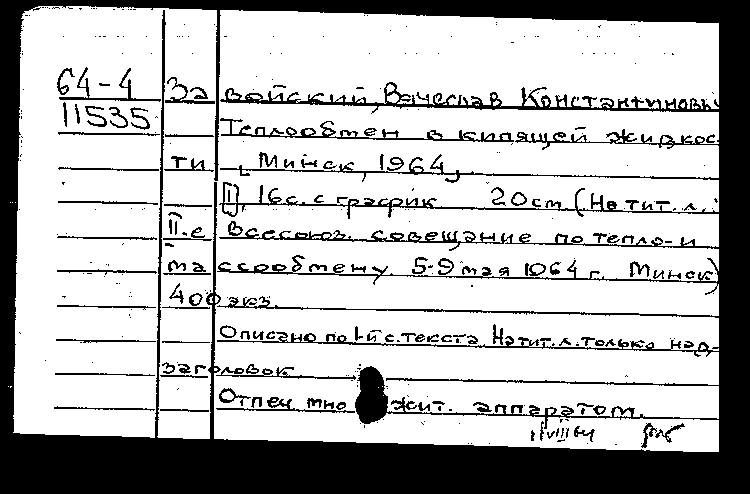 64-4 За войский, Вячеслав Константинович
11535 Теплообмен в кипящей жидкос-
ти. [Минск, 1964].
[1], 16 с. с график 20 см (На тит. л.:
II-е Всесоюз. совещание по тепло- и
массообмену. 5-9 мая 1964 г. Минск)
400 экз.
Описано по 1-й с. текста. На тит. л. только над-
заголовок
Отпеч. множит. аппаратом.
11/VIII 64